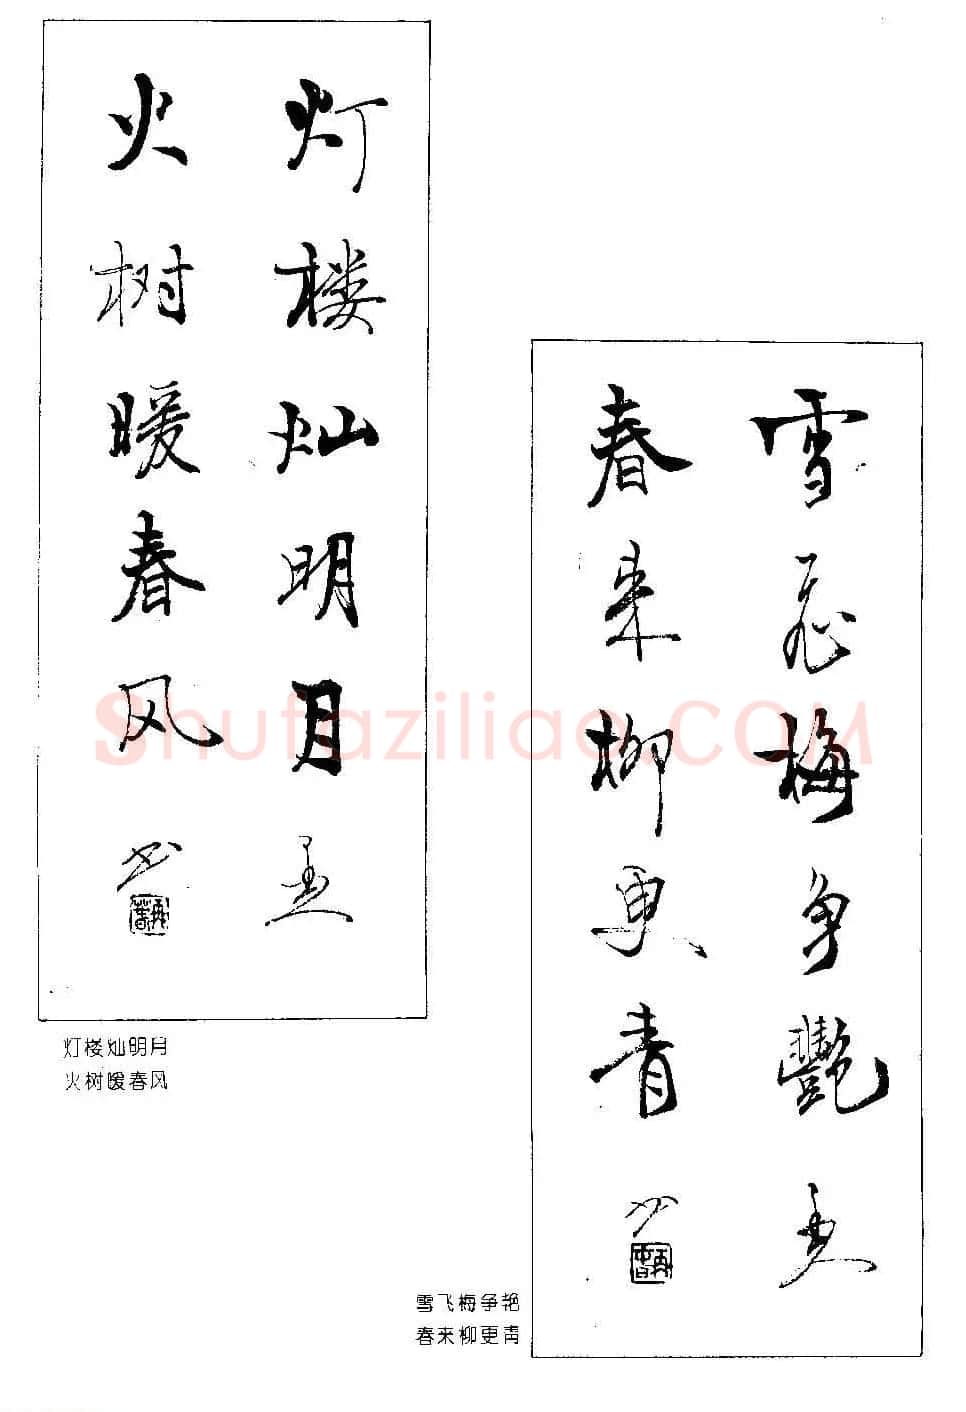 灯楼灿明月
火树暖春风
灯楼灿明月
火树暖春风
雪飞梅争艳
春来柳更青
雪飞梅争艳
春来柳更青
Shufaziliao.COM